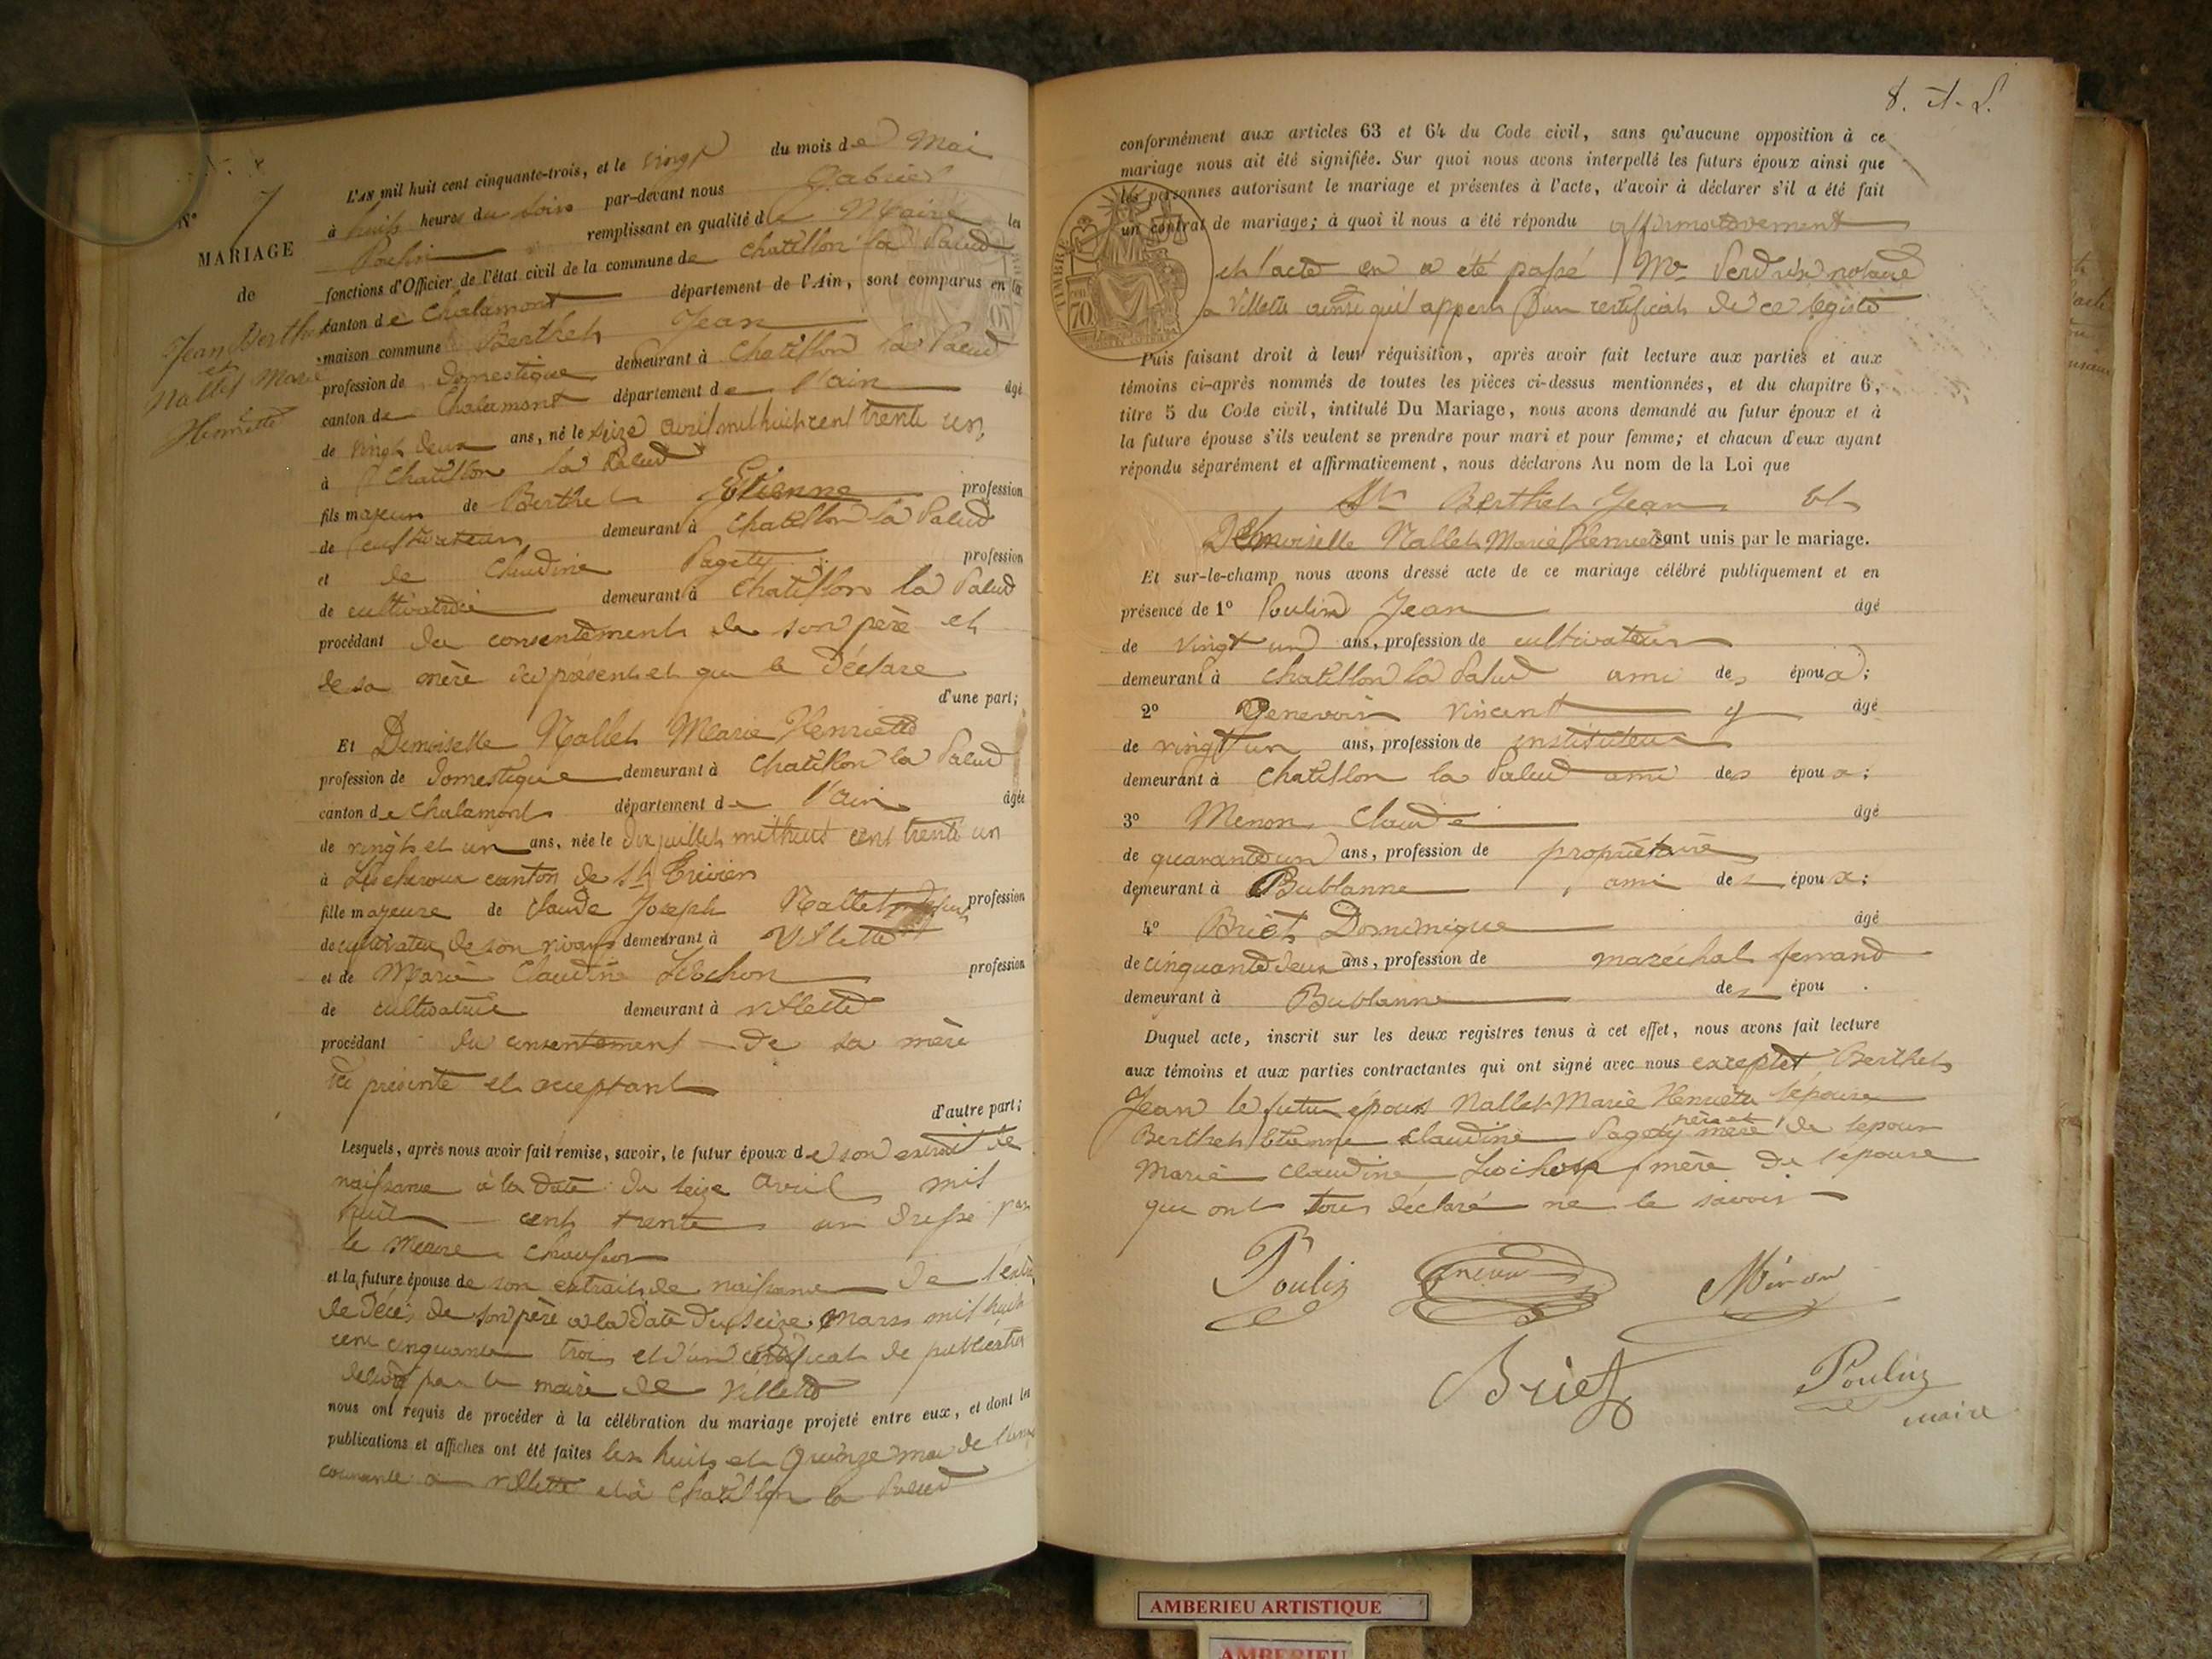 N° 7
MARIAGE
de
Jean Berthet
et
Nallet Marie
Henriette
L'AN mil huit cent cinquante-trois, et le vingt du mois de Mai
à huit heures du soir par-devant nous Gabriel
Poulin remplissant en qualité de Maire les
fonctions d'Officier de l'état civil de la commune de Chatillon la Palud
canton de Chalamont département de l'Ain, sont comparus en la
maison commune Berthet Jean
profession de domestique demeurant à Chatillon la Palud
canton de Chalamont département de l'ain âgé
de vingt deux ans, né le seize avril mil huit cent trente un
à Chatillon la Palud
fils majeur de Berthet Etienne profession
de cultivateur demeurant à Chatillon la Palud
et de Claudine Pagety profession
de cultivatrice demeurant à Chatillon la Palud
procédant du consentement de son père et
de sa mère ici présent et qui le déclare
d'une part;
Et Demoiselle Nallet Marie Henriette
profession de domestique demeurant à Chatillon la Palud
canton de Chalamont département de l'Ain âgée
de vingt et un ans, née le dix juillet mil huit cent trente un
à canton de St Trivier
fille majeure de Claude Joseph Nallet profession
de cultivateur de son vivant demeurant à Villette
et de Marie Claudine profession
de cultivatrice demeurant à Villette
procédant du consentement de sa mère
ici présente et acceptant
d'autre part;
Lesquels, après nous avoir fait remise, savoir, le futur époux de son extrait de
naissance à la date du seize avril mil
huit cent trente un dressé par
le Meme
et la future épouse de son extrait de naissance de l'extrait
de décès de son père a la date du seize Mars mil huit
cent cinquante trois et d'un certificat de publication
délivré par le maire de Villette
nous ont requis de procéder à la célébration du mariage projeté entre eux, et dont les
publications et affiches ont été faites les huit et Quinze mai de l'année
courante à villette et à Chatillon la Palud
8.
conformément aux articles 63 et 64 du Code civil, sans qu'aucune opposition à ce
mariage nous ait été signifiée. Sur quoi nous avons interpellé les futurs époux ainsi que
les personnes autorisant le mariage et présentes à l'acte, d'avoir à déclarer s'il a été fait
un contrat de mariage; à quoi il nous a été répondu affirmativement
TIMBRE
70
et l'acte en a été passé Me Perdrix notaire
a Villette ainsi qu'il appert d'un certificat de ce
Puis faisant droit à leur réquisition, après avoir fait lecture aux parties et aux
témoins ci-après nommés de toutes les pièces ci-dessus mentionnées, et du chapitre 6,
titre 5 du Code civil, intitulé Du Mariage, nous avons demandé au futur époux et à
la future épouse s'ils veulent se prendre pour mari et pour femme; et chacun d'eux ayant
répondu séparément et affirmativement, nous déclarons Au nom de la Loi que
Sr Berthet Jean Et
Demoiselle Nallet Marie Henriette sont unis par le mariage.
Et sur-le-champ nous avons dressé acte de ce mariage célébré publiquement et en
présence de 1° Poulin Jean âgé
de vingt un ans, profession de cultivateur
demeurant à Chatillon la Palud ami des époux;
2° Genevoix Vincent âgé
de vingt un ans, profession de instituteur
demeurant à Chatillon la Palud ami des époux;
3° Menon Claude âgé
de quarante un ans, profession de propriétaire
demeurant à Bublanne, ami des époux;
4° Briet Dominique âgé
de cinquante deux ans, profession de maréchal ferrand
demeurant à Bublanne des épou .
Duquel acte, inscrit sur les deux registres tenus à cet effet, nous avons fait lecture
aux témoins et aux parties contractantes qui ont signé avec nous exceptet Berthet
Jean le futur époux Nallet Marie Henriette lepouse
Berthet Etienne Claudine Pagety père et mère de lepoux
Marie Claudine mère de l'épouse
qui ont tous déclaré ne le savoir
Poulin Menon
Briet Poulin
maire
AMBERIEU ARTISTIQUE
AMBERIEU